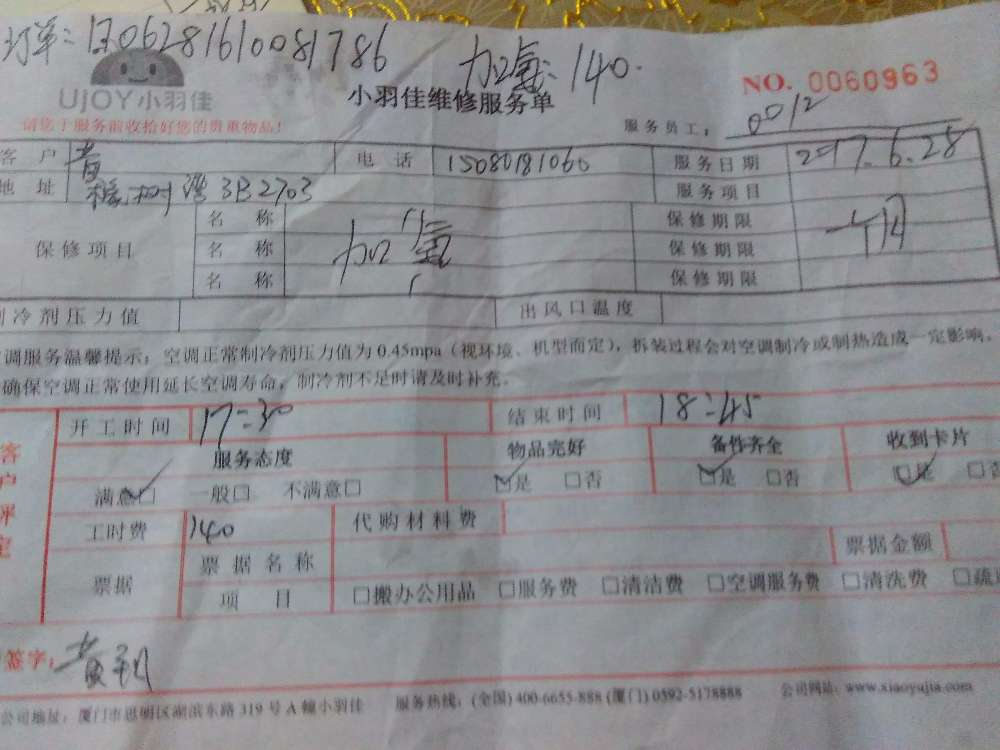 订单：1706281610081786
加氟：140.
UJOY小羽佳
小羽佳维修服务单
NO. 0060963
请您于服务前收拾好您的贵重物品！
服务员工： 0012
客 户 黄 电 话 15080181060 服务日期 2017.6.28
地 址 橡树湾3B2703 服务项目
保修项目 名 称 加氟 保修期限 一个月
名 称 保修期限
名 称 保修期限
制冷剂压力值 出风口温度
调服务温馨提示：空调正常制冷剂压力值为0.45mpa（视环境、机型而定），拆装过程会对空调制冷或制热造成一定影响。
确保空调正常使用延长空调寿命，制冷剂不足时请及时补充。
客户评定
开工时间 17:30 结束时间 18:45
服务态度 物品完好 备件齐全 收到卡片
满意☑ 一般□ 不满意□ ☑是 □否 ☑是 □否 ☑是 □否
工时费 140 代购材料费
票据 票据名称 票据金额
项 目 □搬办公用品 □服务费 □清洁费 □空调服务费 □清洗费
签字：
公司地址：厦门市思明区湖滨东路319号A幢小羽佳 服务热线：(全国) 400-6655-888 (厦门) 0592-5178888 公司网站：www.xiaoyujia.com